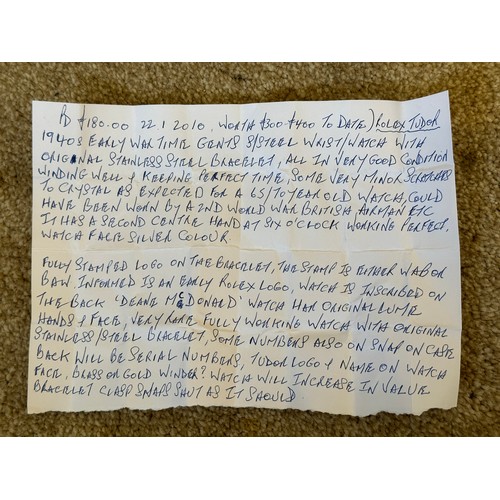 PD £180.00 22.1.2010, WORTH £300-£400 TO DATE) ROLEX TUDOR
1940S EARLY WAR TIME GENTS S/STEEL WRIST/WATCH WITH
ORIGINAL STAINLESS STEEL BRACELET, ALL IN VERY GOOD CONDITION
WINDING WELL & KEEPING PERFECT TIME, SOME VERY MINOR SCRATCHES
TO CRYSTAL AS EXPECTED FOR A 65/70 YEAR OLD WATCH, COULD
HAVE BEEN WORN BY A 2ND WORLD WAR BRITISH AIRMAN ETC
IT HAS A SECOND CENTRE HAND AT SIX O'CLOCK WORKING PERFECT,
WATCH FACE SILVER COLOUR.
FULLY STAMPED LOGO ON THE BRACELET, THE STAMP IS EITHER WAB OR
BAW. INFORMED IS AN EARLY ROLEX LOGO, WATCH IS INSCRIBED ON
THE BACK 'DEANE McDONALD' WATCH HAS ORIGINAL LUME
HANDS & FACE, VERY RARE FULLY WORKING WATCH WITH ORIGINAL
STAINLESS/STEEL BRACELET, SOME NUMBERS ALSO ON SNAP ON CASE
BACK WILL BE SERIAL NUMBERS, TUDOR LOGO & NAME ON WATCH
FACE, BRASS OR GOLD WINDER? WATCH WILL INCREASE IN VALUE
BRACELET CLASP SNAPS SHUT AS IT SHOULD.